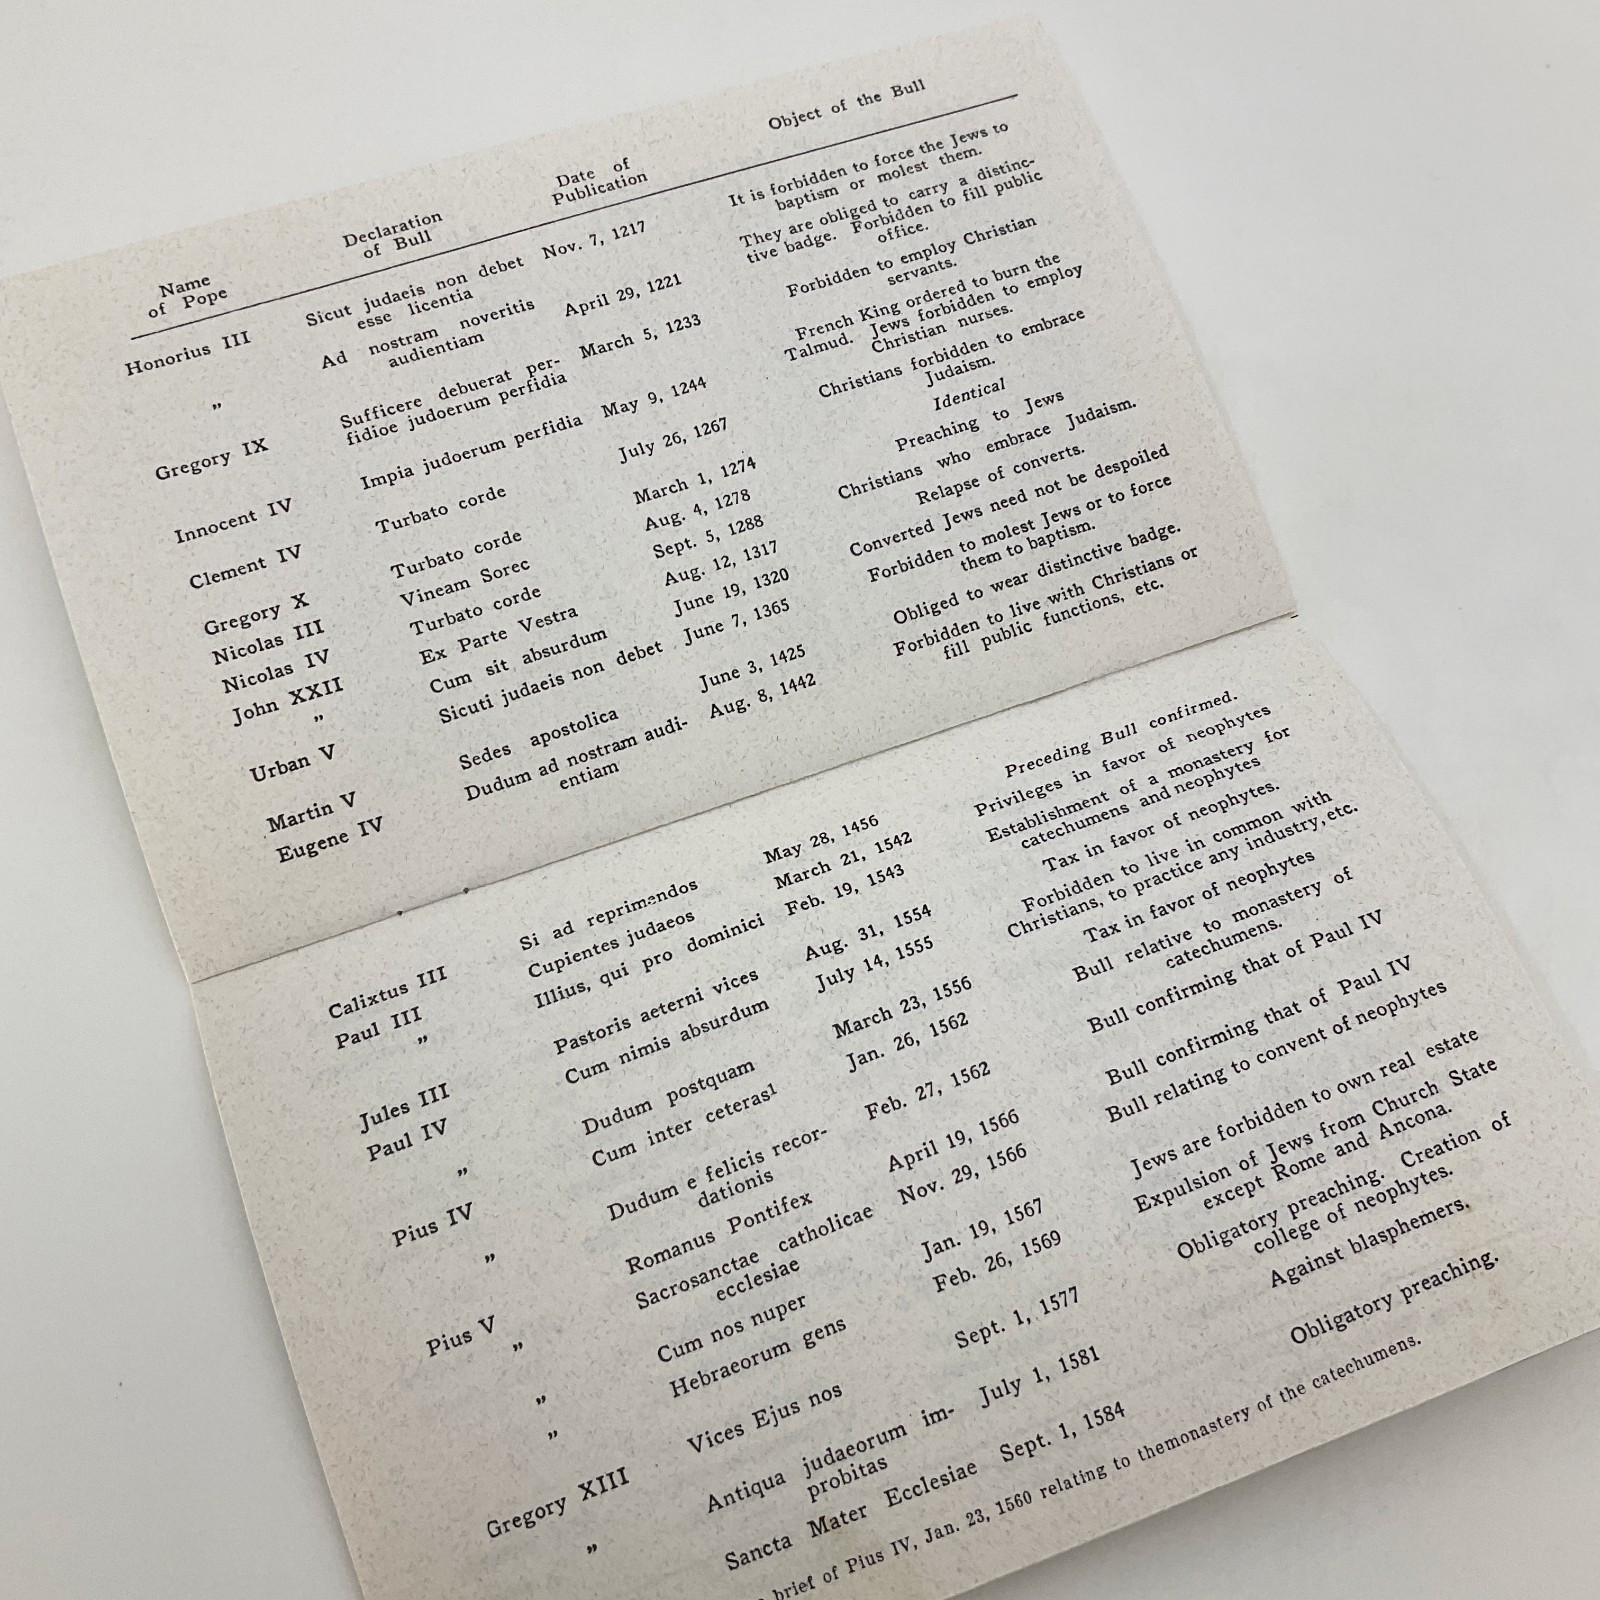 Name of Pope
Declaration of Bull
Date of Publication
Object of the Bull
Honorius III Sicut judaeis non debet Nov. 7, 1217 It is forbidden to force the Jews to
esse licentia baptism or molest them.
„ Ad nostram noveritis April 29, 1221 They are obliged to carry a distinc-
audientiam tive badge. Forbidden to fill public
office.
Gregory IX Sufficere debuerat per- March 5, 1233 Forbidden to employ Christian
fidioe judoerum perfidia servants.
Innocent IV Impia judoerum perfidia May 9, 1244 French King ordered to burn the
Talmud. Jews forbidden to employ
Christian nurses.
Clement IV Turbato corde July 26, 1267 Christians forbidden to embrace
Judaism.
Gregory X Turbato corde March 1, 1274 Identical
Nicolas III Vineam Sorec Aug. 4, 1278 Preaching to Jews
Nicolas IV Turbato corde Sept. 5, 1288 Christians who embrace Judaism.
John XXII Ex Parte Vestra Aug. 12, 1317 Relapse of converts.
„ Cum sit absurdum June 19, 1320 Converted Jews need not be despoiled
Urban V Sicuti judaeis non debet June 7, 1365 Forbidden to molest Jews or to force
them to baptism.
Martin V Sedes apostolica June 3, 1425 Obliged to wear distinctive badge.
Eugene IV Dudum ad nostram audi- Aug. 8, 1442 Forbidden to live with Christians or
entiam fill public functions, etc.
Calixtus III Si ad reprimendos May 28, 1456 Preceding Bull confirmed.
Paul III Cupientes judaeos March 21, 1542 Privileges in favor of neophytes
„ Illius, qui pro dominici Feb. 19, 1543 Establishment of a monastery for
catechumens and neophytes
Jules III Pastoris aeterni vices Aug. 31, 1554 Tax in favor of neophytes.
Paul IV Cum nimis absurdum July 14, 1555 Forbidden to live in common with
Christians, to practice any industry, etc.
„ Dudum postquam March 23, 1556 Tax in favor of neophytes
Pius IV Cum inter ceteras¹ Jan. 26, 1562 Bull relative to monastery of
catechumens.
„ Dudum e felicis recor- Feb. 27, 1562 Bull confirming that of Paul IV
dationis
Pius V Romanus Pontifex April 19, 1566 Bull confirming that of Paul IV
„ Sacrosanctae catholicae Nov. 29, 1566 Bull relating to convent of neophytes
ecclesiae
„ Cum nos nuper Jan. 19, 1567 Jews are forbidden to own real estate
„ Hebraeorum gens Feb. 26, 1569 Expulsion of Jews from Church State
except Rome and Ancona.
Gregory XIII Vices Ejus nos Sept. 1, 1577 Obligatory preaching. Creation of
college of neophytes.
„ Antiqua judaeorum im- July 1, 1581 Against blasphemers.
probitas
Sancta Mater Ecclesiae Sept. 1, 1584 Obligatory preaching.
brief of Pius IV, Jan. 23, 1560 relating to themonastery of the catechumens.